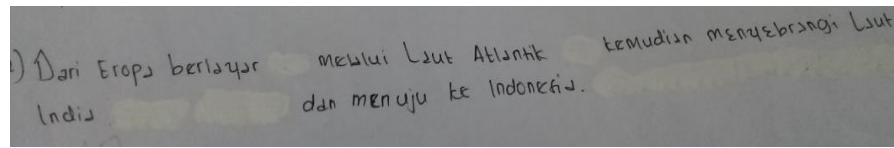 ) Dari Eropa berlayar melalui Laut Atlantik kemudian menyebrangi Laut
India dan menuju ke Indonesia.